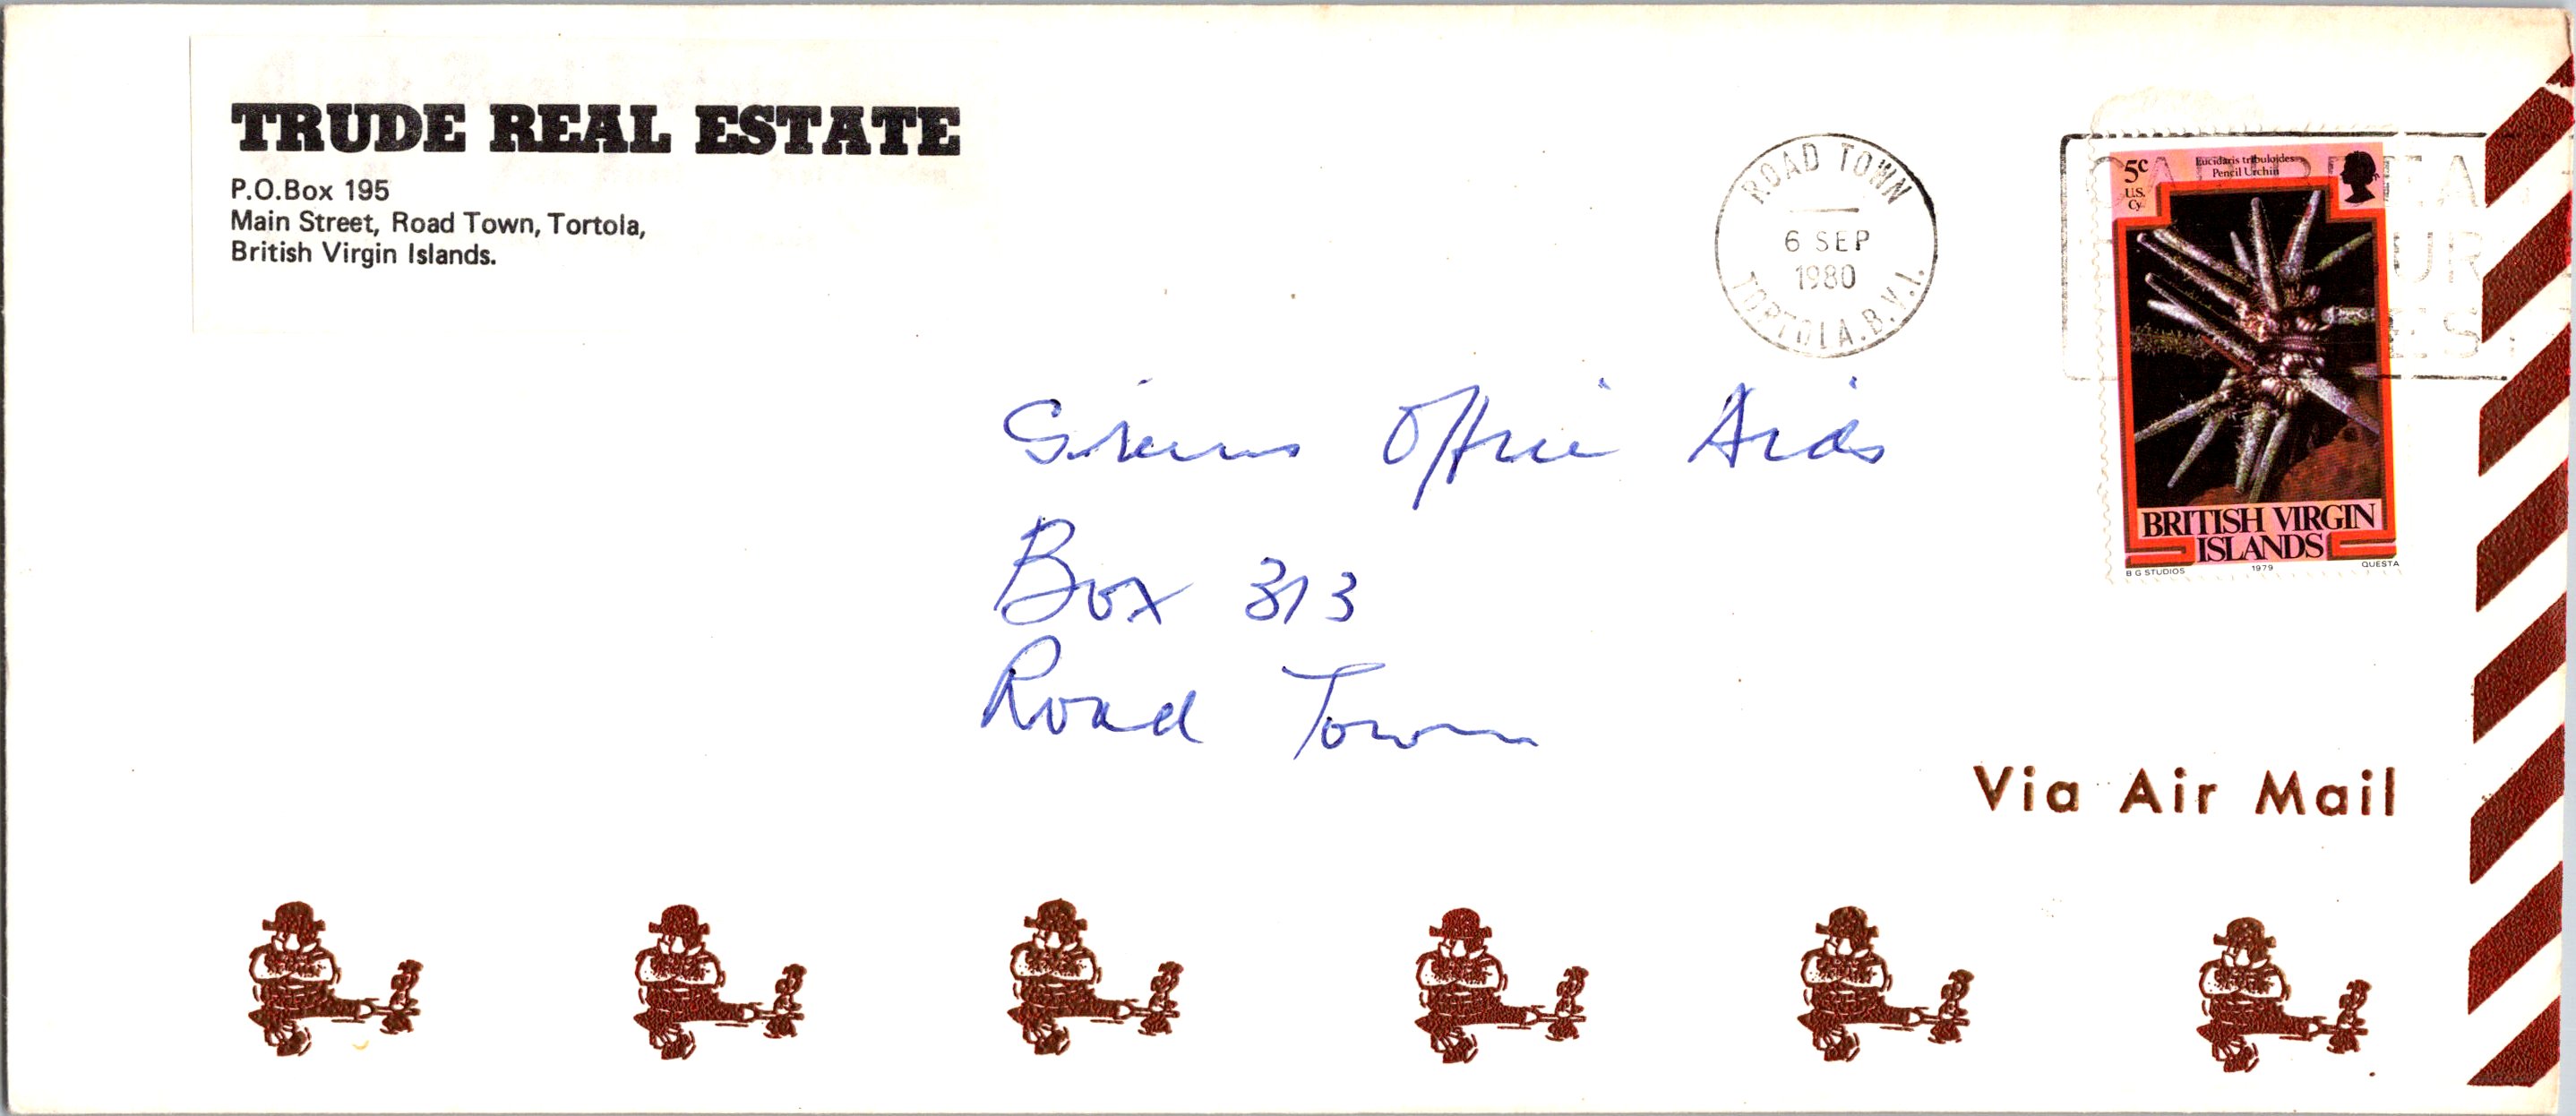 TRUDE REAL ESTATE
P.O.Box 195
Main Street, Road Town, Tortola,
British Virgin Islands.
ROAD TOWN
6 SEP
1980
TORTOLA. B.V.I.
5c
U.S.
Cy
Eucidaris tribuloides
Pencil Urchin
BRITISH VIRGIN
ISLANDS
B G STUDIOS 1979 QUESTA
Office Aids
Box 313
Road Town
Via Air Mail